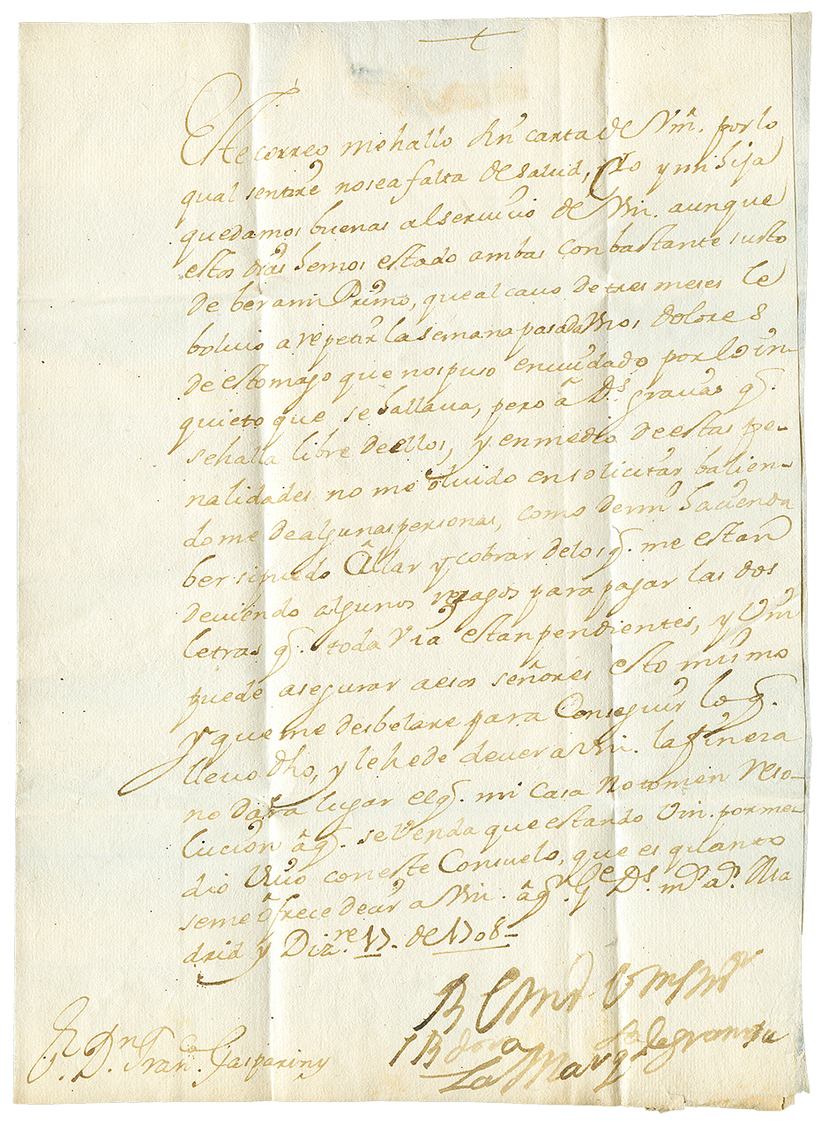 Este correo me hallo sin carta de Vm. por lo
qual sentire no sea falta de salud, Yo y mi hija
quedamos buenas al seruicio de Vm. aunque
estos dias hemos estado ambas con bastante susto
de ber a mi Primo, que al cauo de tres meses le
boluio a repetir la semana pasada Unos dolores
de estomago que nos puso en cuidado por lo in-
quieto que se hallaua, pero â Ds. gracias q.
se halla libre de ellos, y en medio de estas pe-
nalidades no me oluido en solicitar balien-
dome de algunas personas, como de mi hacienda
ber si puedo allar y cobrar de los q. me estan
deuiendo algunos rezagos para pagar las dos
letras q. toda via estan pendientes, y Vm
puede asegurar a esos señores esto mismo
y que me desbelare para Conseguir lo q.
lleuo dho, y le he de deuer a Vm. la fineza
no dara lugar el q. mi casa no tomen reso-
lucion âq. se Venda que estando Vm. por me-
dio Viuo con este Consuelo, que es quanto
se me ôfrece decir a Vm. âq. ge Ds. ms. as. Ma
drid y Dizre. 17. de 1708-
B L M de Vm su mr
s Bdora
La Marqsa de
Sr. Dn. Franco. Gaspariny